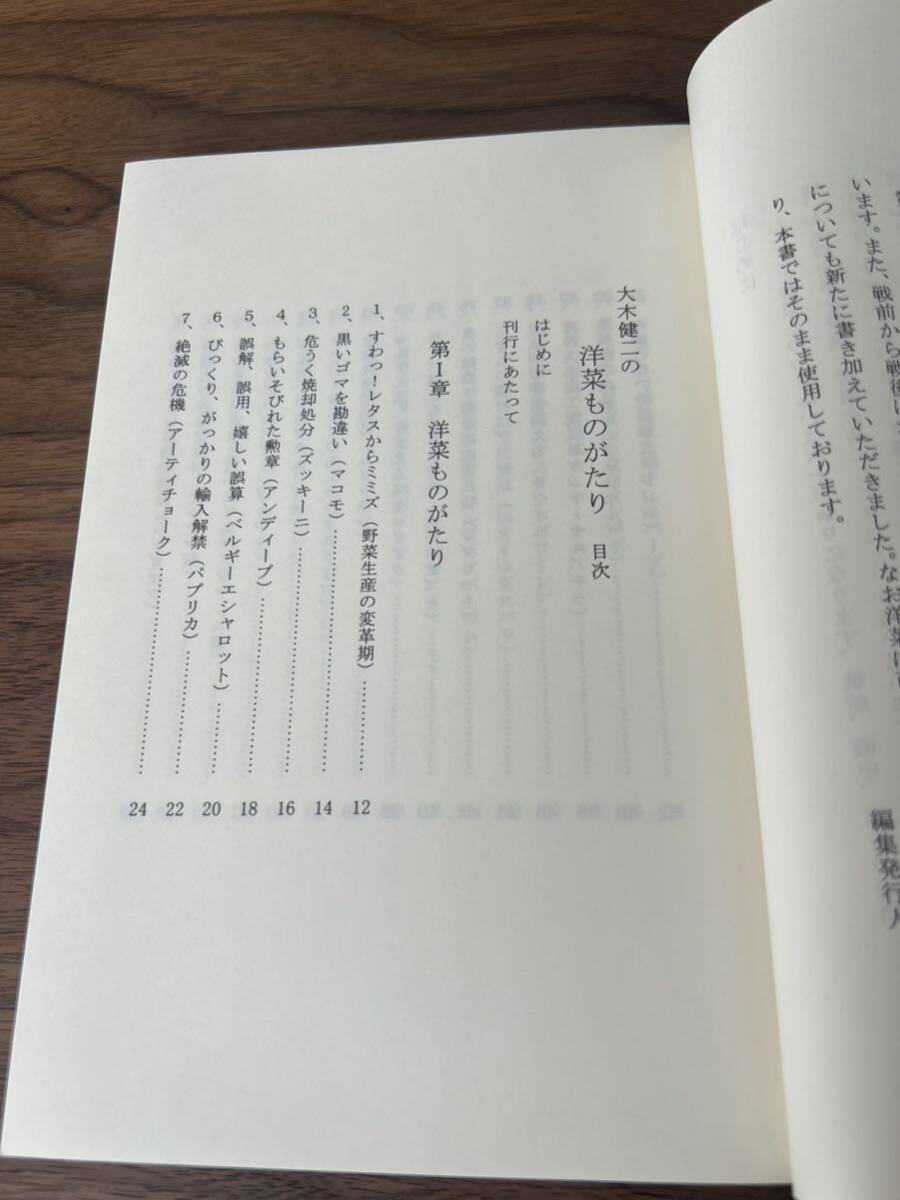 います。また、戦前から戦後に
についても新たに書き加えていただきました。なお洋菜
り、本書ではそのまま使用しております。
編集発行人
大木健二の
洋菜ものがたり 目次
はじめに
刊行にあたって
第Ⅰ章 洋菜ものがたり
1、すわっ!レタスからミミズ(野菜生産の変革期)………… 12
2、黒いゴマを勘違い(マコモ)………… 14
3、危うく焼却処分(ズッキーニ)………… 16
4、もらいそびれた勲章(アンディーブ)………… 16
5、誤解、誤用、嬉しい誤算(ベルギーエシャロット)………… 18
6、びっくり、がっかりの輸入解禁(パプリカ)………… 20
7、絶滅の危機(アーティチョーク)………… 24